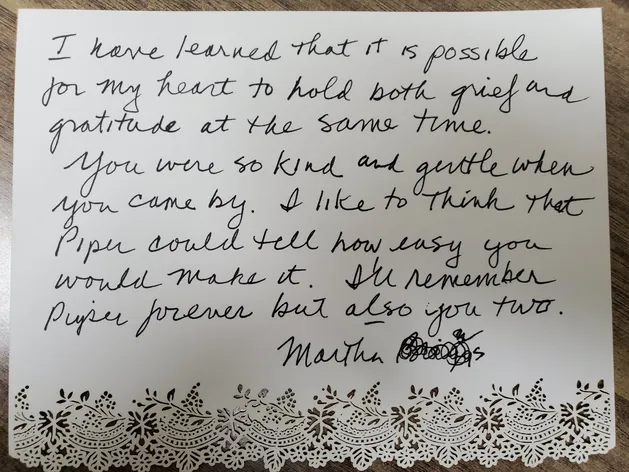 I have learned that it is possible
for my heart to hold both grief and
gratitude at the same time.
You were so kind and gentle when
you came by. I like to think that
Piper could tell how easy you
would make it. I'll remember
Piper forever but also you two.
Martha